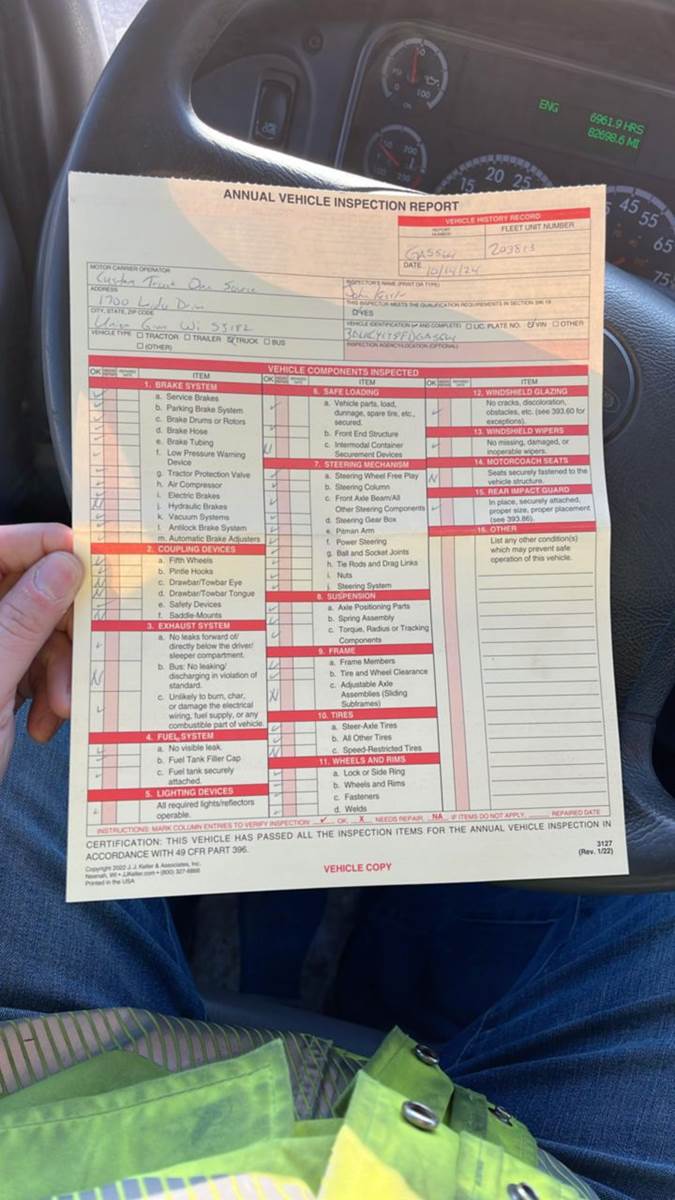 ENG 6961.9 HRS
82698.6 MI
ANNUAL VEHICLE INSPECTION REPORT
VEHICLE HISTORY RECORD
REPORT NUMBER
FLEET UNIT NUMBER
DATE 10/14/24
MOTOR CARRIER OPERATOR
Custom Truck One Source
ADDRESS
1700
CITY, STATE, ZIP CODE
Union Grove Wi 53182
VEHICLE TYPE ☐ TRACTOR ☐ TRAILER ☑ TRUCK ☐ BUS
☐ (OTHER)
INSPECTOR'S NAME (PRINT OR TYPE)
John
THIS INSPECTOR MEETS THE QUALIFICATION REQUIREMENTS IN SECTION 396.19
☑ YES
VEHICLE IDENTIFICATION (✓ AND COMPLETE) ☐ LIC. PLATE NO. ☑ VIN ☐ OTHER
INSPECTION AGENCY/LOCATION (OPTIONAL)
VEHICLE COMPONENTS INSPECTED
OK
ITEM
1. BRAKE SYSTEM
a. Service Brakes
b. Parking Brake System
c. Brake Drums or Rotors
d. Brake Hose
e. Brake Tubing
f. Low Pressure Warning
Device
g. Tractor Protection Valve
h. Air Compressor
i. Electric Brakes
j. Hydraulic Brakes
k. Vacuum Systems
l. Antilock Brake System
m. Automatic Brake Adjusters
2. COUPLING DEVICES
a. Fifth Wheels
b. Pintle Hooks
c. Drawbar/Towbar Eye
d. Drawbar/Towbar Tongue
e. Safety Devices
f. Saddle-Mounts
3. EXHAUST SYSTEM
a. No leaks forward of/
directly below the driver/
sleeper compartment.
b. Bus: No leaking/
discharging in violation of
standard.
c. Unlikely to burn, char,
or damage the electrical
wiring, fuel supply, or any
combustible part of vehicle.
4. FUEL SYSTEM
a. No visible leak.
b. Fuel Tank Filler Cap
c. Fuel tank securely
attached.
5. LIGHTING DEVICES
All required lights/reflectors
operable.
OK
ITEM
6. SAFE LOADING
a. Vehicle parts, load,
dunnage, spare tire, etc.,
secured.
b. Front End Structure
c. Intermodal Container
Securement Devices
7. STEERING MECHANISM
a. Steering Wheel Free Play
b. Steering Column
c. Front Axle Beam/All
Other Steering Components
d. Steering Gear Box
e. Pitman Arm
f. Power Steering
g. Ball and Socket Joints
h. Tie Rods and Drag Links
i. Nuts
j. Steering System
8. SUSPENSION
a. Axle Positioning Parts
b. Spring Assembly
c. Torque, Radius or Tracking
Components
9. FRAME
a. Frame Members
b. Tire and Wheel Clearance
c. Adjustable Axle
Assemblies (Sliding
Subframes)
10. TIRES
a. Steer-Axle Tires
b. All Other Tires
c. Speed-Restricted Tires
11. WHEELS AND RIMS
a. Lock or Side Ring
b. Wheels and Rims
c. Fasteners
d. Welds
OK
ITEM
12. WINDSHIELD GLAZING
No cracks, discoloration,
obstacles, etc. (see 393.60 for
exceptions).
13. WINDSHIELD WIPERS
No missing, damaged, or
inoperable wipers.
14. MOTORCOACH SEATS
Seats securely fastened to the
vehicle structure.
15. REAR IMPACT GUARD
In place, securely attached,
proper size, proper placement
(see 393.86).
16. OTHER
List any other condition(s)
which may prevent safe
operation of this vehicle.
INSTRUCTIONS: MARK COLUMN ENTRIES TO VERIFY INSPECTION: ✓ OK, X NEEDS REPAIR, NA IF ITEMS DO NOT APPLY, REPAIRED DATE
CERTIFICATION: THIS VEHICLE HAS PASSED ALL THE INSPECTION ITEMS FOR THE ANNUAL VEHICLE INSPECTION IN
ACCORDANCE WITH 49 CFR PART 396.
Copyright 2022 J. J. Keller & Associates, Inc.
Neenah, WI • JJKeller.com • (800) 327-6868
Printed in the USA
VEHICLE COPY
3127
(Rev. 1/22)